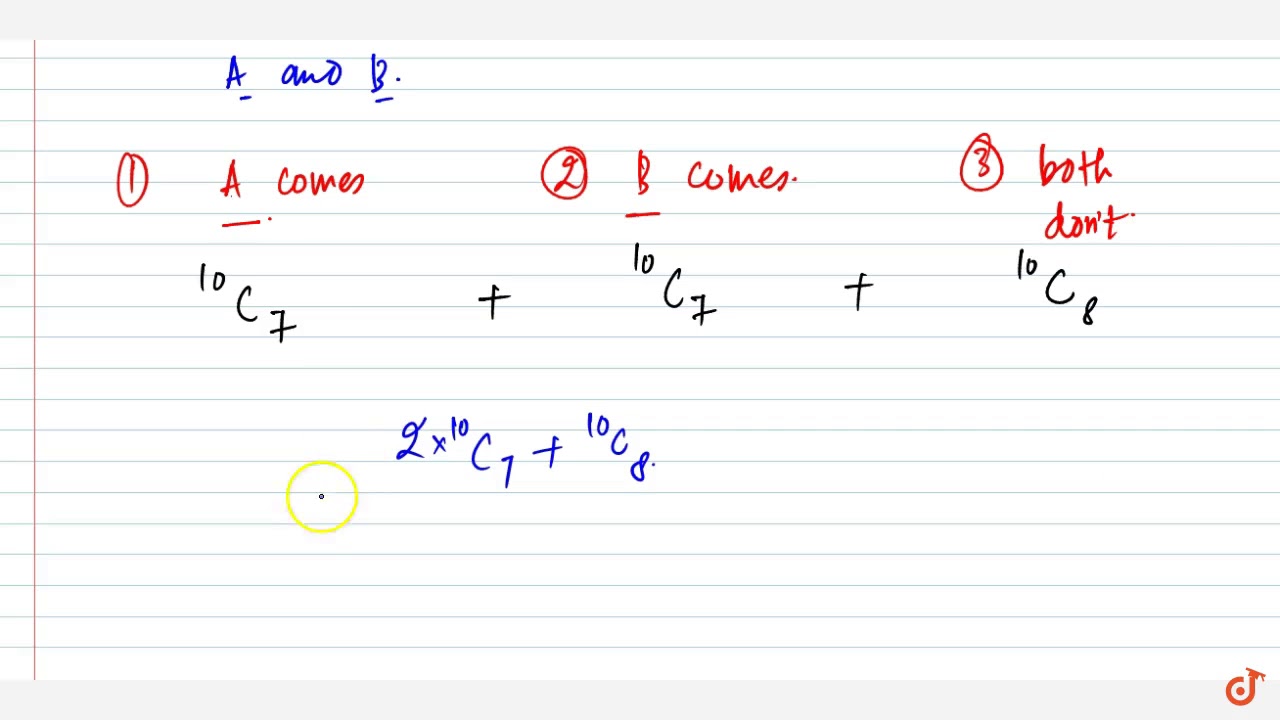 A and B.
① A comes ② B comes. ③ both don't.
¹⁰C₇ + ¹⁰C₇ + ¹⁰C₈
2×¹⁰C₇ + ¹⁰C₈.